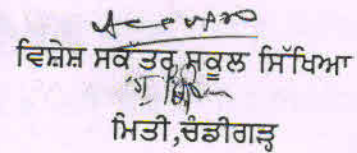 ਵਿਸ਼ੇਸ਼ ਸਕੱਤਰ ਸਕੂਲ ਸਿੱਖਿਆ
ਮਿਤੀ,ਚੰਡੀਗੜ੍ਹ